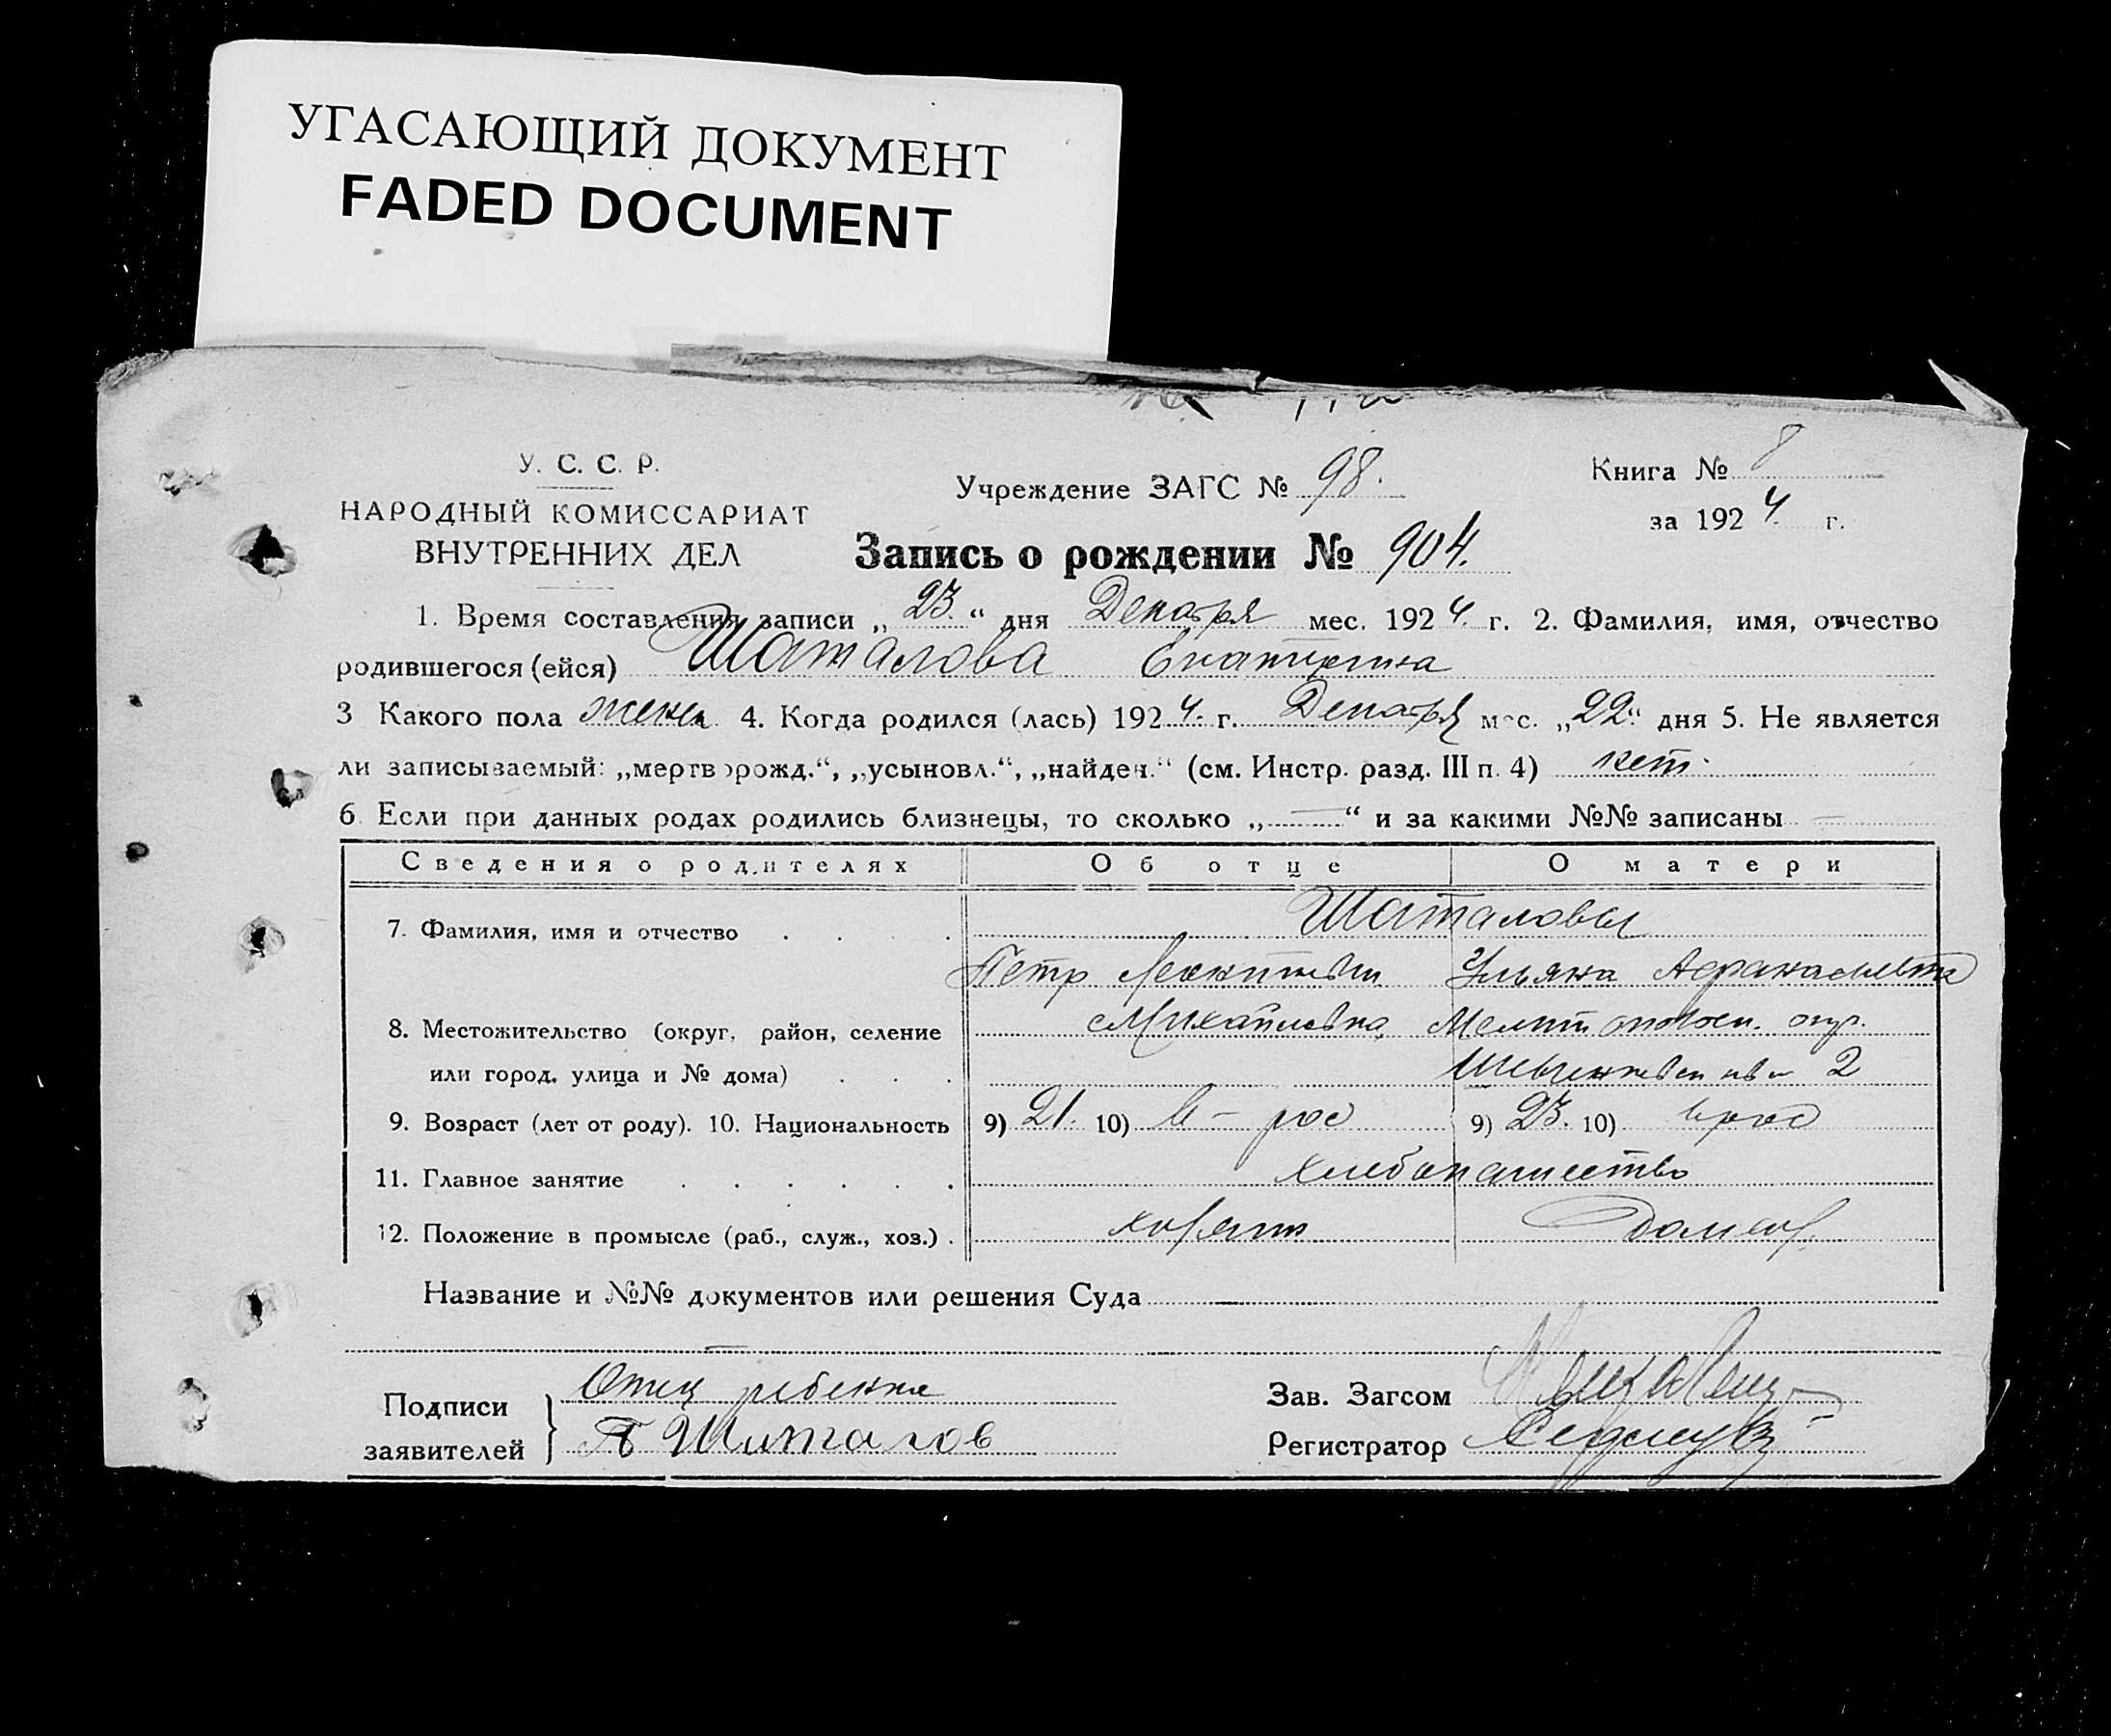 УГАСАЮЩИЙ ДОКУМЕНТ
FADED DOCUMENT
У. С. С. Р.
НАРОДНЫЙ КОМИССАРИАТ
ВНУТРЕННИХ ДЕЛ
Учреждение ЗАГС № 98.
Книга № 8
за 1924 г.
Запись о рождении № 904.
1. Время составления записи „23.“ дня Декабря мес. 1924. г. 2. Фамилия, имя, отчество
родившегося (ейся) Шаталова Екатерина
3 Какого пола женск. 4. Когда родился (лась) 1924. г. Декабря мес. „22“ дня 5. Не является
ли записываемый: „мертворожд.“, „усыновл.“, „найден.“ (см. Инстр. разд. III п. 4) нет.
6. Если при данных родах родились близнецы, то сколько „—“ и за какими №№ записаны —
Сведения о родителях Об отце О матери
7. Фамилия, имя и отчество Шаталовы
Петр Ульяна Афанасьевна
8. Местожительство (округ, район, селение Михайловка, Мелитопольск. окр.
или город, улица и № дома) 2
9. Возраст (лет от роду). 10. Национальность 9) 21. 10) В-рос 9) 23. 10) врос
11. Главное занятие хлебопашество
12. Положение в промысле (раб., служ., хоз.) хозяин Домхоз.
Название и №№ документов или решения Суда —
—
Подписи заявителей } Отец ребенка
П Шаталов
Зав. Загсом
Регистратор